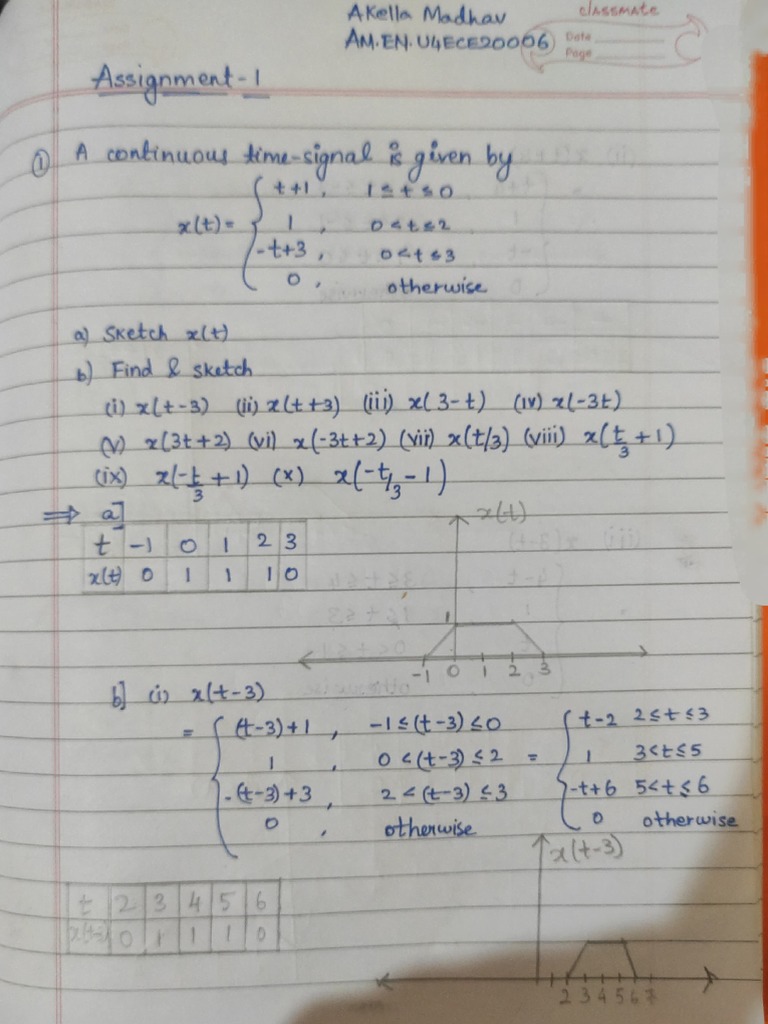 Akella Madhav
AM.EN.U4ECE20006
classmate
Date
Page
Assignment-1
① A continuous time-signal is given by
x(t)= { t+1, 1≤t≤0
1, 0<t≤2
-t+3, 0<t≤3
0, otherwise
a) Sketch x(t)
b) Find & sketch
(i) x(t-3) (ii) x(t+3) (iii) x(3-t) (iv) x(-3t)
(v) x(3t+2) (vi) x(-3t+2) (vii) x(t/3) (viii) x(t/3 + 1)
(ix) x(-t/3 + 1) (x) x(-t/3 - 1)
⇒ a]
t -1 0 1 2 3
x(t) 0 1 1 1 0
x(t)
1
-1 0 1 2 3
b] (i) x(t-3)
= { (t-3)+1, -1≤(t-3)≤0 = { t-2 2≤t≤3
1, 0<(t-3)≤2 1 3<t≤5
-(t-3)+3, 2<(t-3)≤3 -t+6 5<t≤6
0, otherwise 0 otherwise
x(t-3)
t 2 3 4 5 6
x(t-3) 0 1 1 1 0
2 3 4 5 6